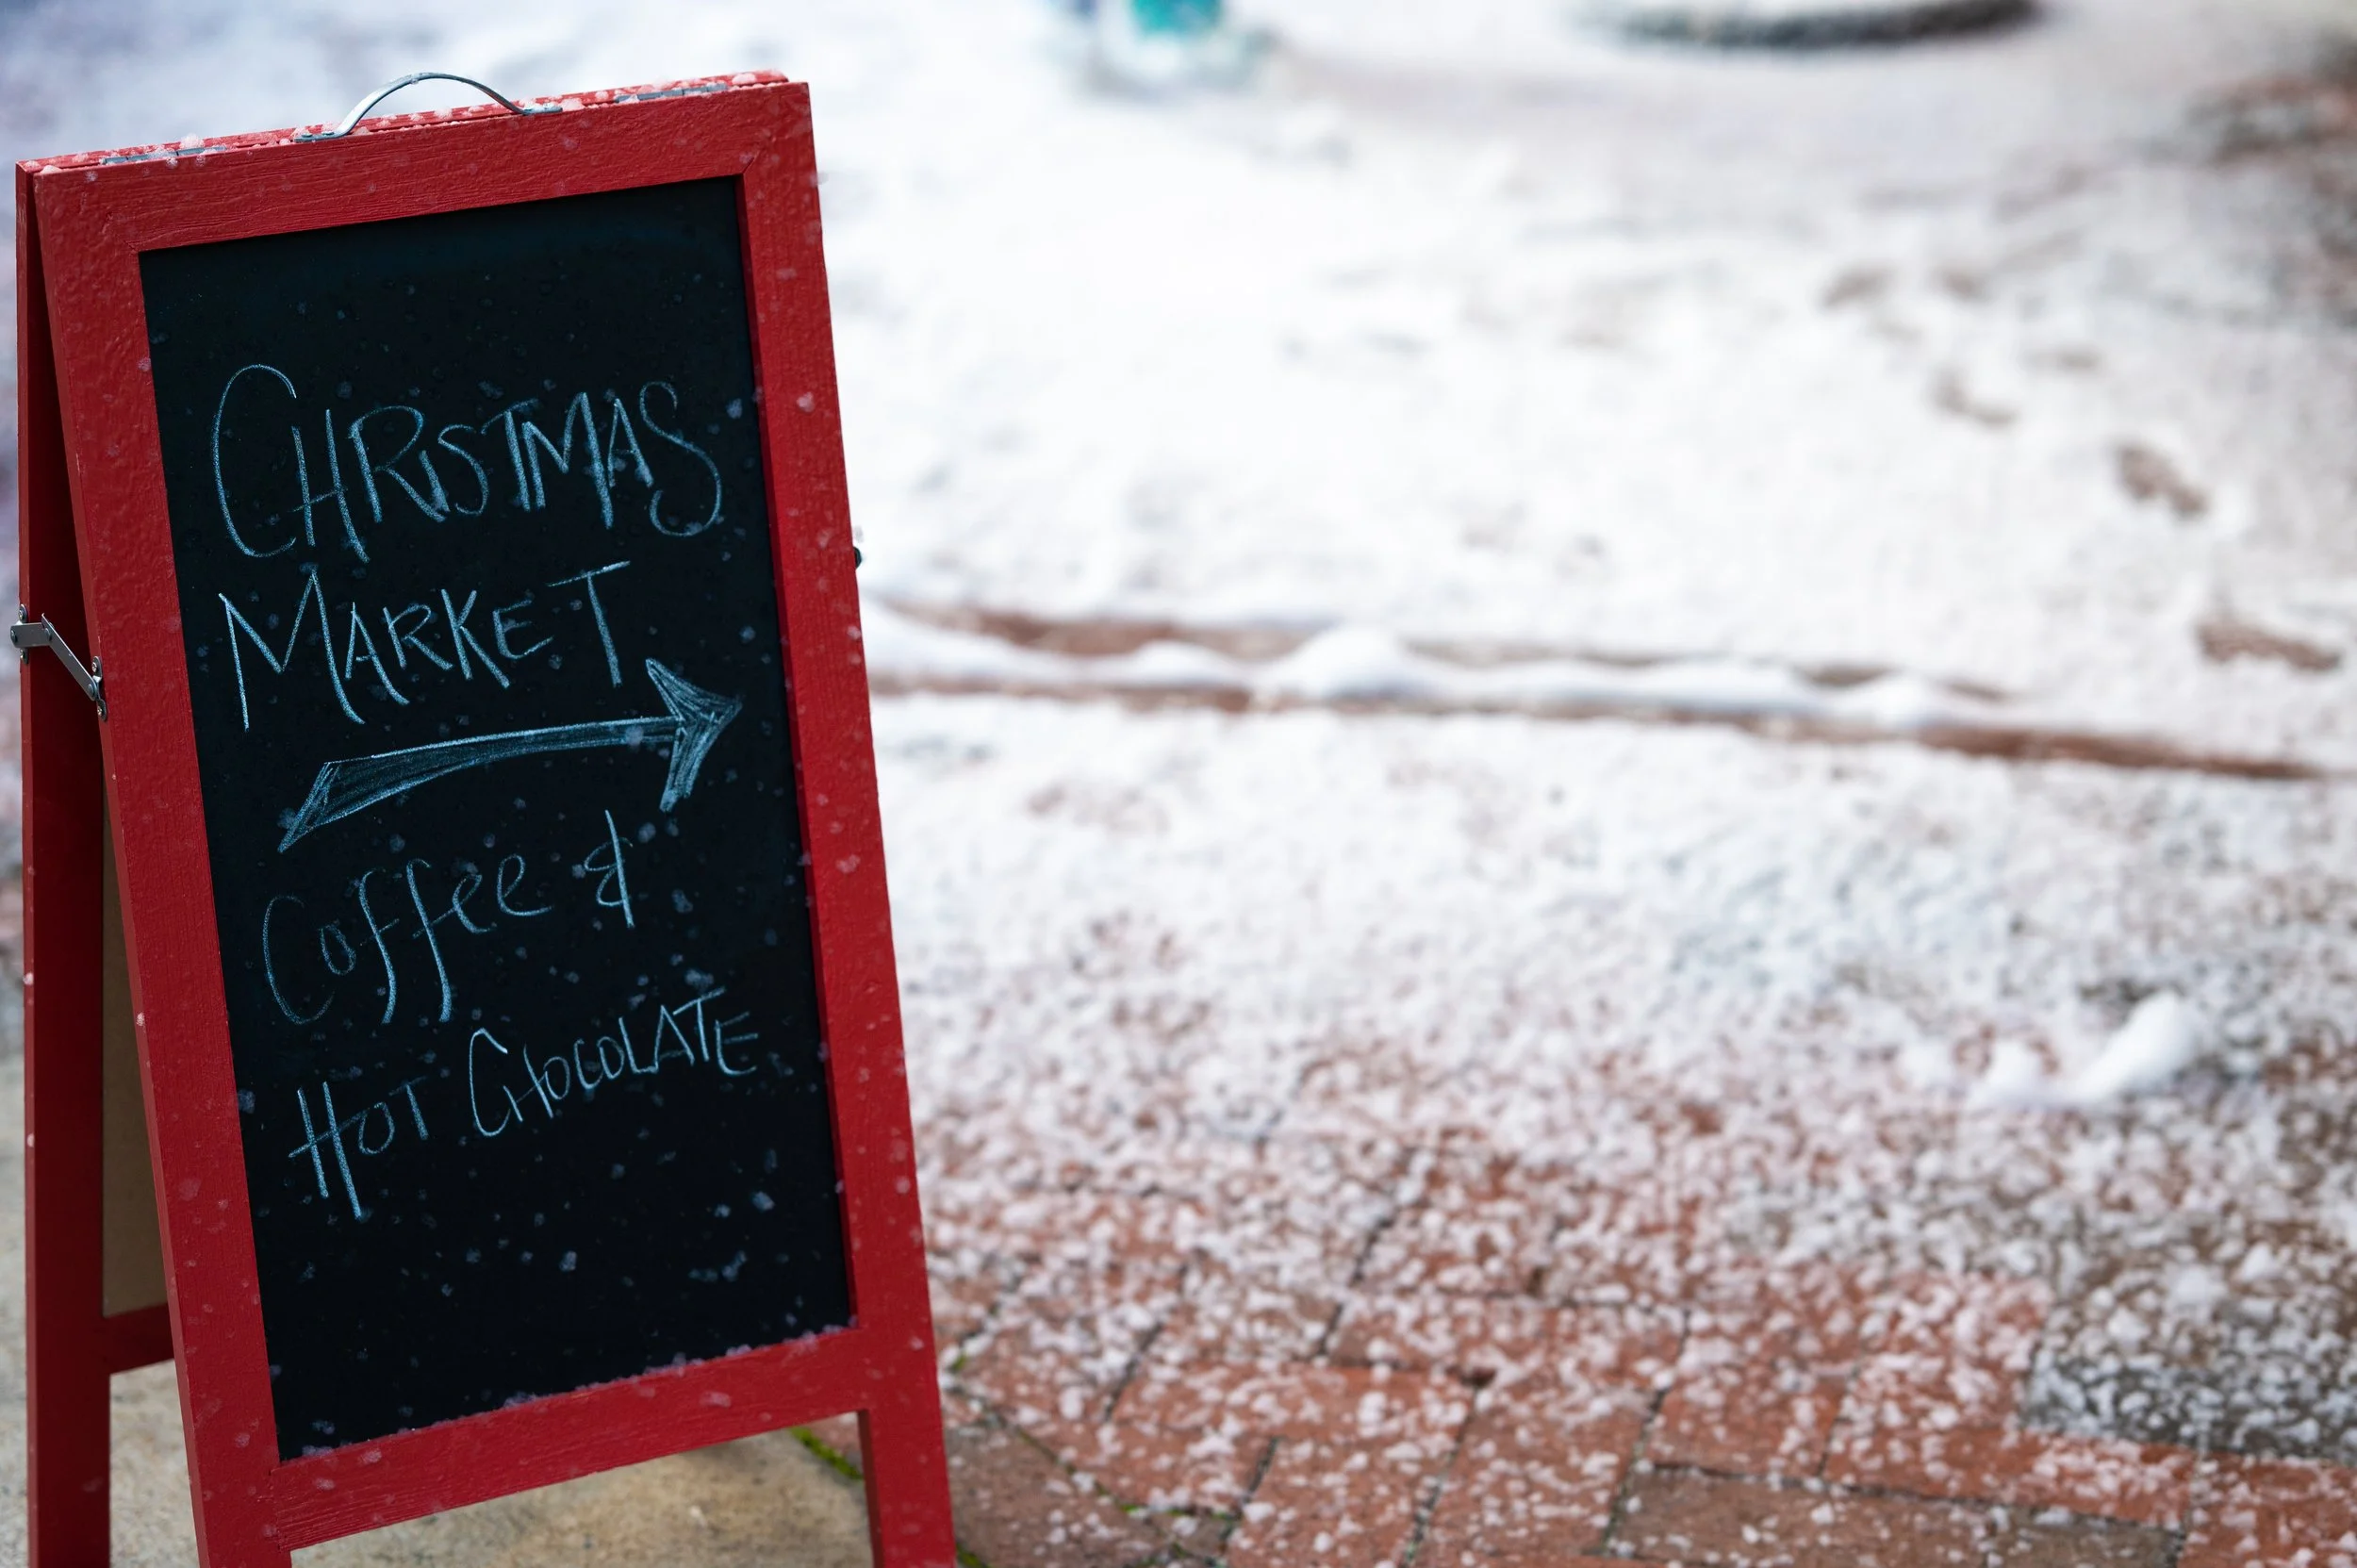 CHRISTMAS
MARKET
Coffee &
HOT CHOCOLATE